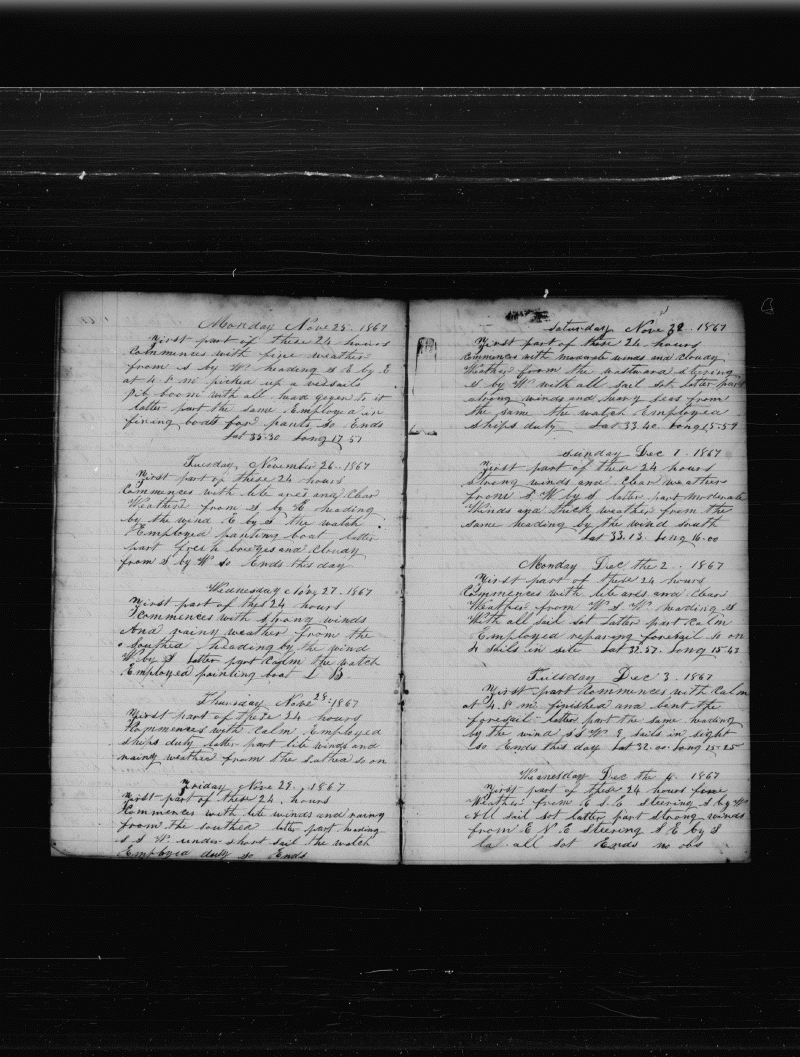 Monday Nove 25. 1867
First part of these 24 hours
Commences with fine weather
from S by W. heading S E by E
at 4 P m picked up a vessails
jib boom with all head geyer to it
latter part the same Employed in
fixing boats for paint, so Ends
Lat 35.30 Long 17 51
Tuesday, November 26. 1867
First part of these 24 hours
Commences with lite ares and Clear
Weather from S by E heading
by the wind E by S the watch
Employed painting boat latter
part fresh breezes and Cloudy
from S by W so Ends this day
Wednesday Nov 27. 1867
First part of thes 24 hours
Commences with strong winds
And rainy weather from the
Southed heading by the wind
W by S latter part Calm the watch
Employed painting boat L B
Thursday Nove 28. 1867
First part of these 24 hours
Commences with Calm Employed
ships duty latter part lite winds and
rainy weather from the Suthed so on
Friday Nove 29. 1867
First part of these 24 hours
Commences with lite winds and rainy
from the southed latter part heading
S S W. under short sail the watch
Employed duty so Ends
Saturday Nove 1867
First part of these 24 hours
Commences with moderate winds and Cloudy
Weather from the westward steering
S by W with all sail sot latter part
strong winds and heavy seas from
the same the watch Employed
ships duty Lat 33.40. Long 15.57
Sunday Dec 1. 1867
First part of these 24 hours
strong winds and Clear weather
from S W by S latter part Moderate
Winds and thick weather from the
same heading by the wind south
Lat 33.13. Long 16.00
Monday Dec the 2. 1867
First part of these 24 hours
Commences with lite ares and Clear
Weather from W S W. heading S
With all sail sot latter part Calm
Employed reparing foresail so on
sails in site Lat 32.57. Long 15 43
Tuesday Dec 3. 1867
First part Commences with Calm
at 4. P m. finished and bent the
foresail latter part the same heading
by the wind S S W. 9 sails in sight
so Ends this day Lat 32.00. Long 15.25
Wednesday Dec the 4. 1867
First part of these 24 hours fine
Weather from E S E steering S by W
All sail sot latter part strong winds
from E N E steering S E by S
all sot Ends no obs